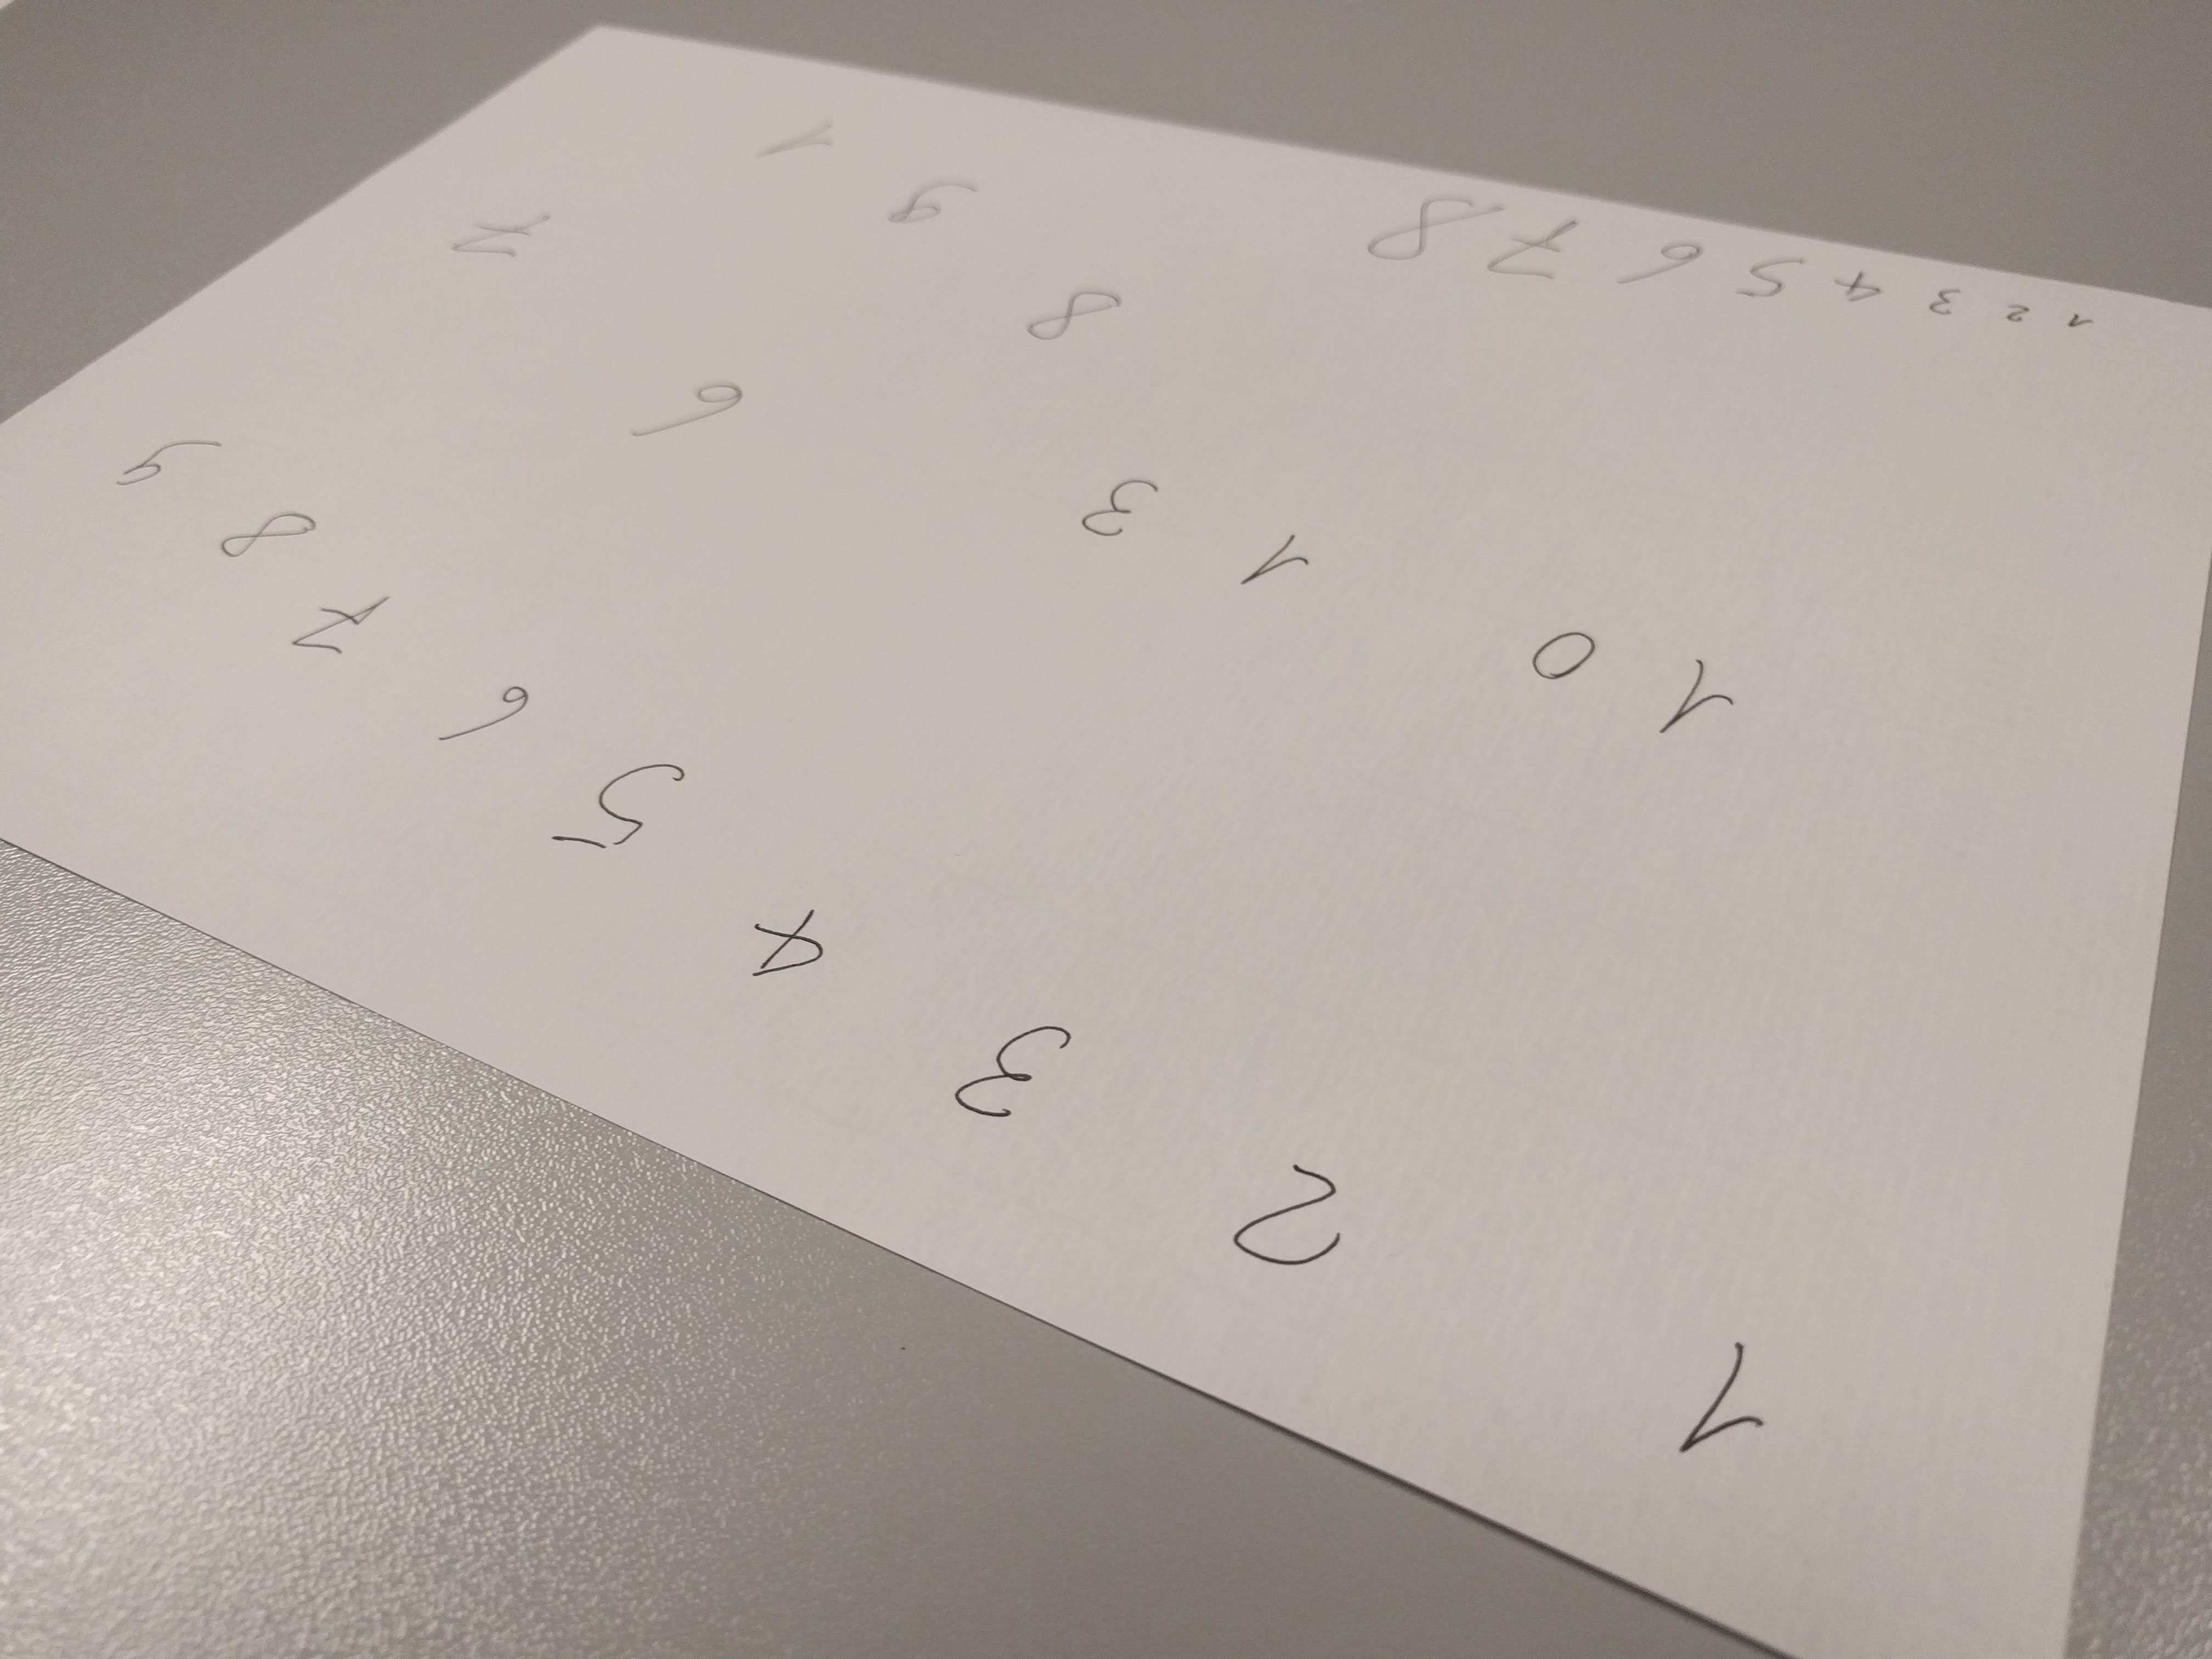 1 2 3 4 5 6 7 8 9
1 0 1 3 6 7
8 9 1
1 2 3 4 5 6 7 8